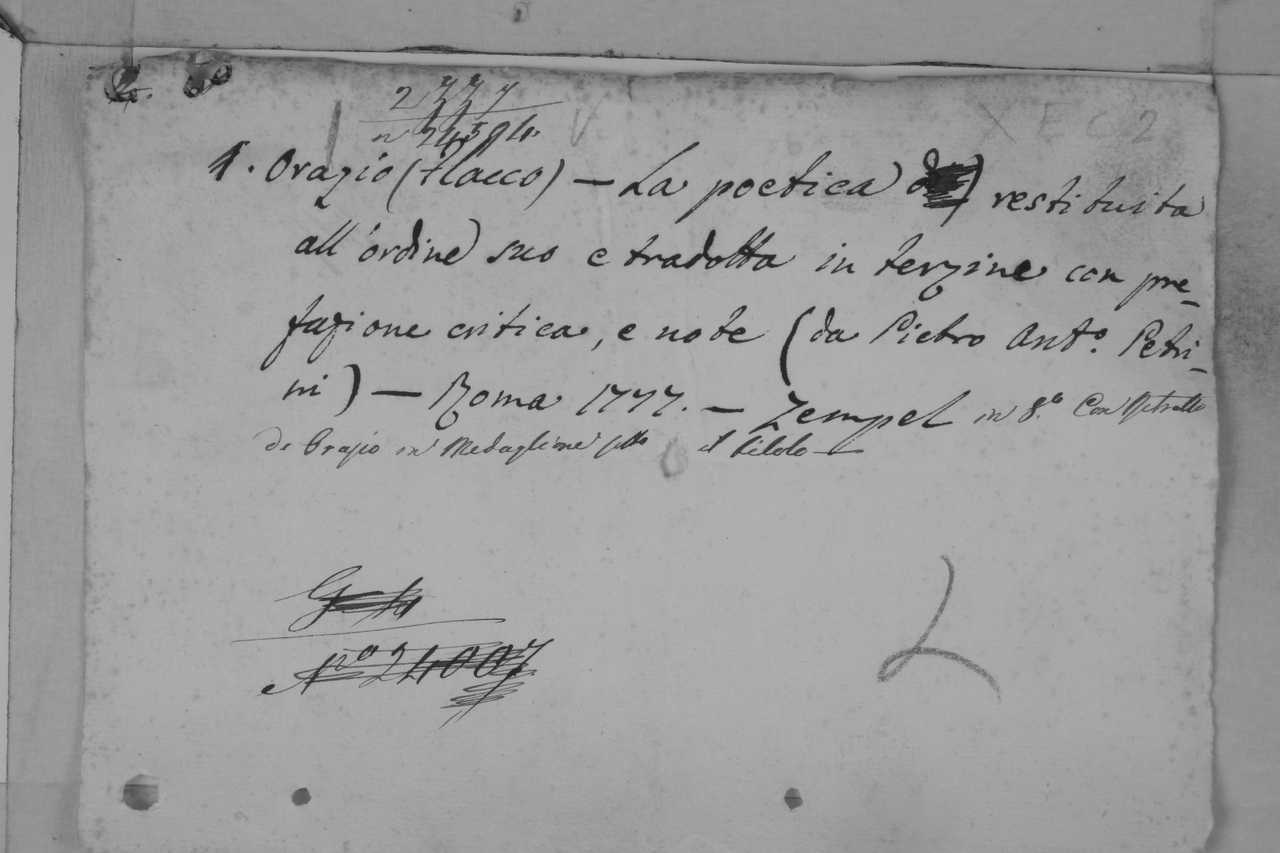 2777
n 24594.
X E C 2
1. Orazio (Flacco) — La poetica restituita
all'ordine suo e tradotta in terzine con pre-
fazione critica, e note (da Pietro Ant.o Petri-
ni) — Roma 1777. — Zempel in 8.o Con Ritratto
di Orazio in Medaglione sotto il titolo —
No 24007
L